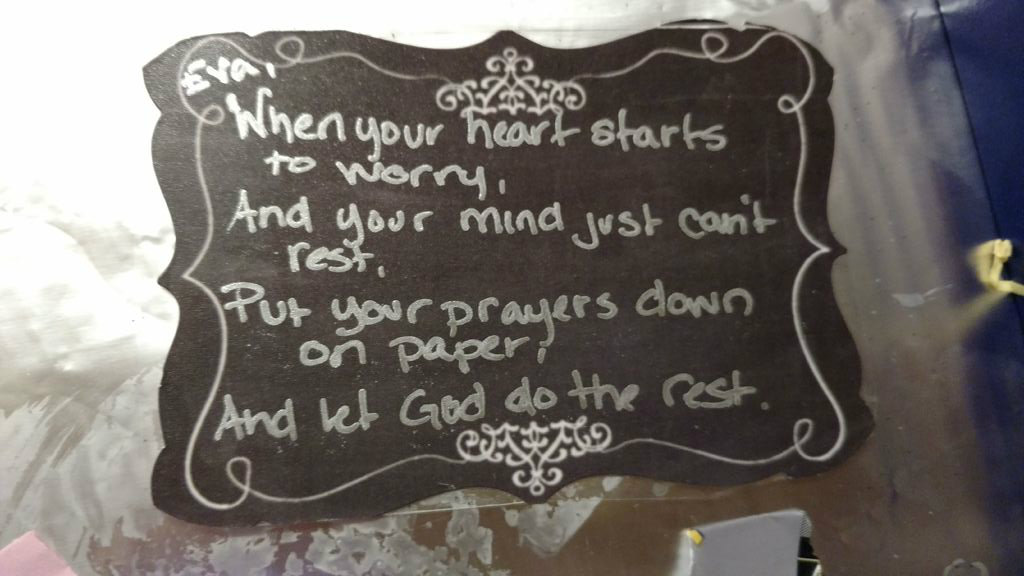 Eva,
When your heart starts
to worry,
And your mind just can't
rest,
Put your prayers down
on paper,
And let God do the rest.